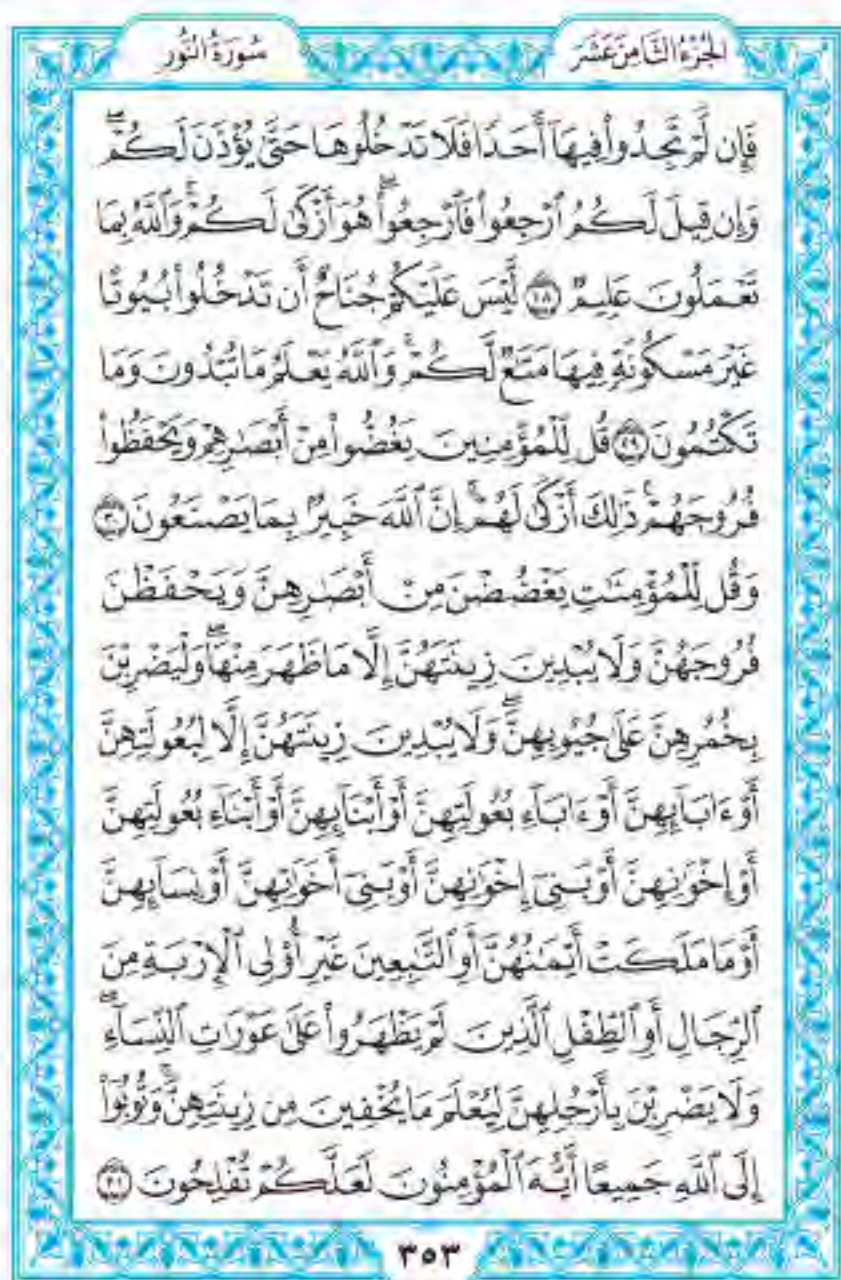 الجُزْءُ الثَّامِنَ عَشَرَ
سُورَةُ النُّورِ
فَإِن لَّمْ تَجِدُوا۟ فِيهَآ أَحَدًا فَلَا تَدْخُلُوهَا حَتَّىٰ يُؤْذَنَ لَكُمْ ۖ
وَإِن قِيلَ لَكُمُ ٱرْجِعُوا۟ فَٱرْجِعُوا۟ ۖ هُوَ أَزْكَىٰ لَكُمْ ۚ وَٱللَّهُ بِمَا
تَعْمَلُونَ عَلِيمٌ ۝٢٨ لَّيْسَ عَلَيْكُمْ جُنَاحٌ أَن تَدْخُلُوا۟ بُيُوتًا
غَيْرَ مَسْكُونَةٍ فِيهَا مَتَـٰعٌ لَّكُمْ ۚ وَٱللَّهُ يَعْلَمُ مَا تُبْدُونَ وَمَا
تَكْتُمُونَ ۝٢٩ قُل لِّلْمُؤْمِنِينَ يَغُضُّوا۟ مِنْ أَبْصَـٰرِهِمْ وَيَحْفَظُوا۟
فُرُوجَهُمْ ۚ ذَٰلِكَ أَزْكَىٰ لَهُمْ ۗ إِنَّ ٱللَّهَ خَبِيرٌۢ بِمَا يَصْنَعُونَ ۝٣٠
وَقُل لِّلْمُؤْمِنَـٰتِ يَغْضُضْنَ مِنْ أَبْصَـٰرِهِنَّ وَيَحْفَظْنَ
فُرُوجَهُنَّ وَلَا يُبْدِينَ زِينَتَهُنَّ إِلَّا مَا ظَهَرَ مِنْهَا ۖ وَلْيَضْرِبْنَ
بِخُمُرِهِنَّ عَلَىٰ جُيُوبِهِنَّ ۖ وَلَا يُبْدِينَ زِينَتَهُنَّ إِلَّا لِبُعُولَتِهِنَّ
أَوْ ءَابَآئِهِنَّ أَوْ ءَابَآءِ بُعُولَتِهِنَّ أَوْ أَبْنَآئِهِنَّ أَوْ أَبْنَآءِ بُعُولَتِهِنَّ
أَوْ إِخْوَٰنِهِنَّ أَوْ بَنِىٓ إِخْوَٰنِهِنَّ أَوْ بَنِىٓ أَخَوَٰتِهِنَّ أَوْ نِسَآئِهِنَّ
أَوْ مَا مَلَكَتْ أَيْمَـٰنُهُنَّ أَوِ ٱلتَّـٰبِعِينَ غَيْرِ أُو۟لِى ٱلْإِرْبَةِ مِنَ
ٱلرِّجَالِ أَوِ ٱلطِّفْلِ ٱلَّذِينَ لَمْ يَظْهَرُوا۟ عَلَىٰ عَوْرَٰتِ ٱلنِّسَآءِ ۖ
وَلَا يَضْرِبْنَ بِأَرْجُلِهِنَّ لِيُعْلَمَ مَا يُخْفِينَ مِن زِينَتِهِنَّ ۚ وَتُوبُوٓا۟
إِلَى ٱللَّهِ جَمِيعًا أَيُّهَ ٱلْمُؤْمِنُونَ لَعَلَّكُمْ تُفْلِحُونَ ۝٣١
٣٥٣